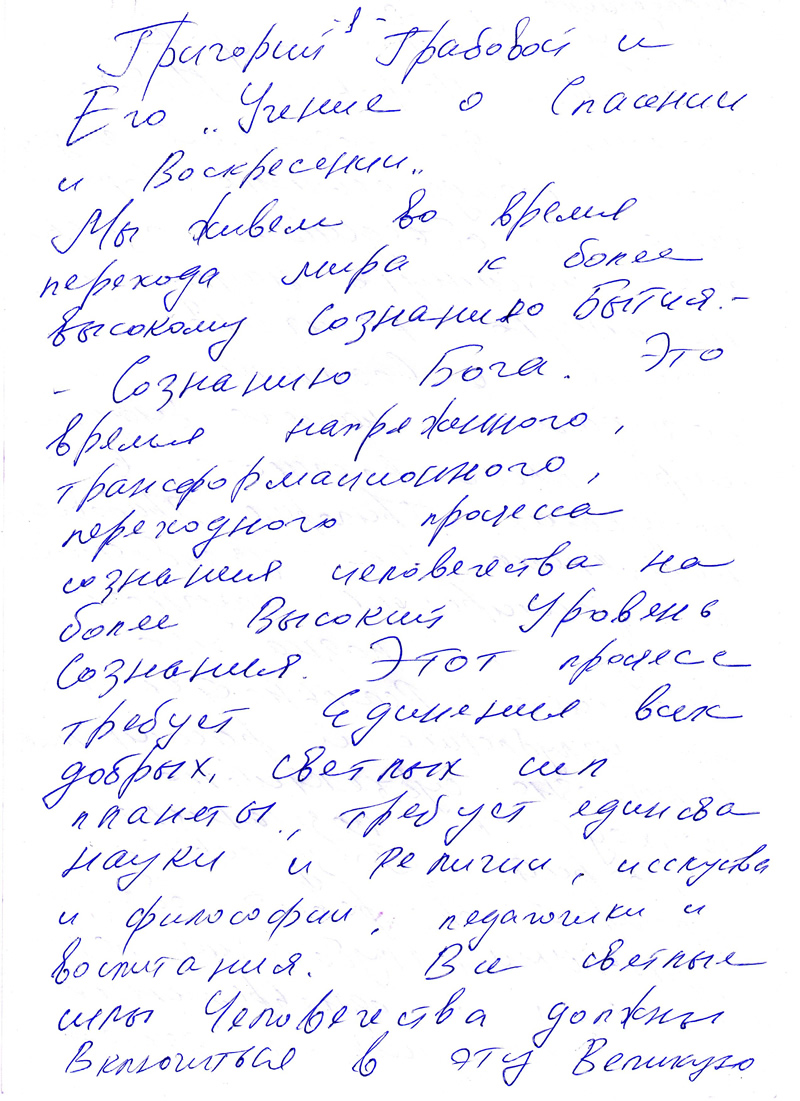 -1-
Григорий Грабовой и
Его „Учение о Спасении
и Воскресении„
Мы живем во время
перехода мира к более
высокому Сознанию Бытия.-
- Сознанию Бога. Это
время напряженного,
трансформационного,
переходного процесса
сознания человечества на
более Высокий Уровень
Сознания. Этот процесс
требует Единения всех
добрых, светлых сил
планеты, требует единсва
науки и религии, исскуства
и философии, педагогики и
воспитания. Все светлые
силы Человечества должны
Включиться в эту Великую